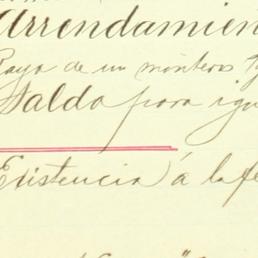 Arrendamien
Raya de un monteros
Saldo para igu
Existencia á la fe